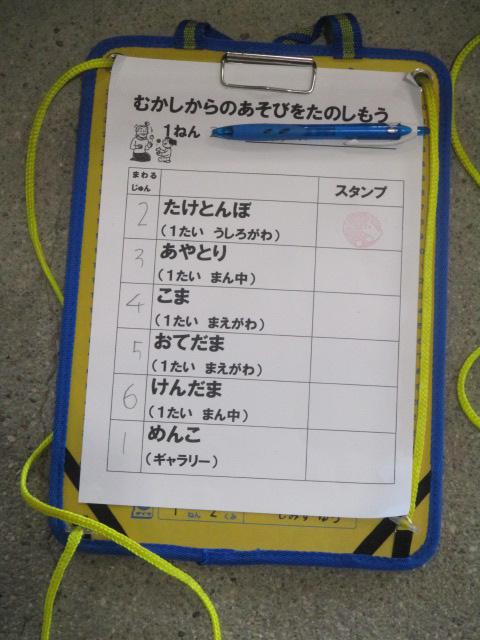 むかしからのあそびをたのしもう
1ねん
まわる
じゅん
スタンプ
2 たけとんぼ
(1たい うしろがわ)
3 あやとり
(1たい まん中)
4 こま
(1たい まえがわ)
5 おてだま
(1たい まえがわ)
6 けんだま
(1たい まん中)
1 めんこ
(ギャラリー)
1 ねん 2 くみ